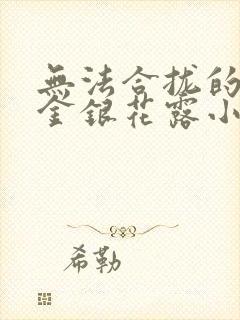 無法合拢的
金銀花露小
希勒